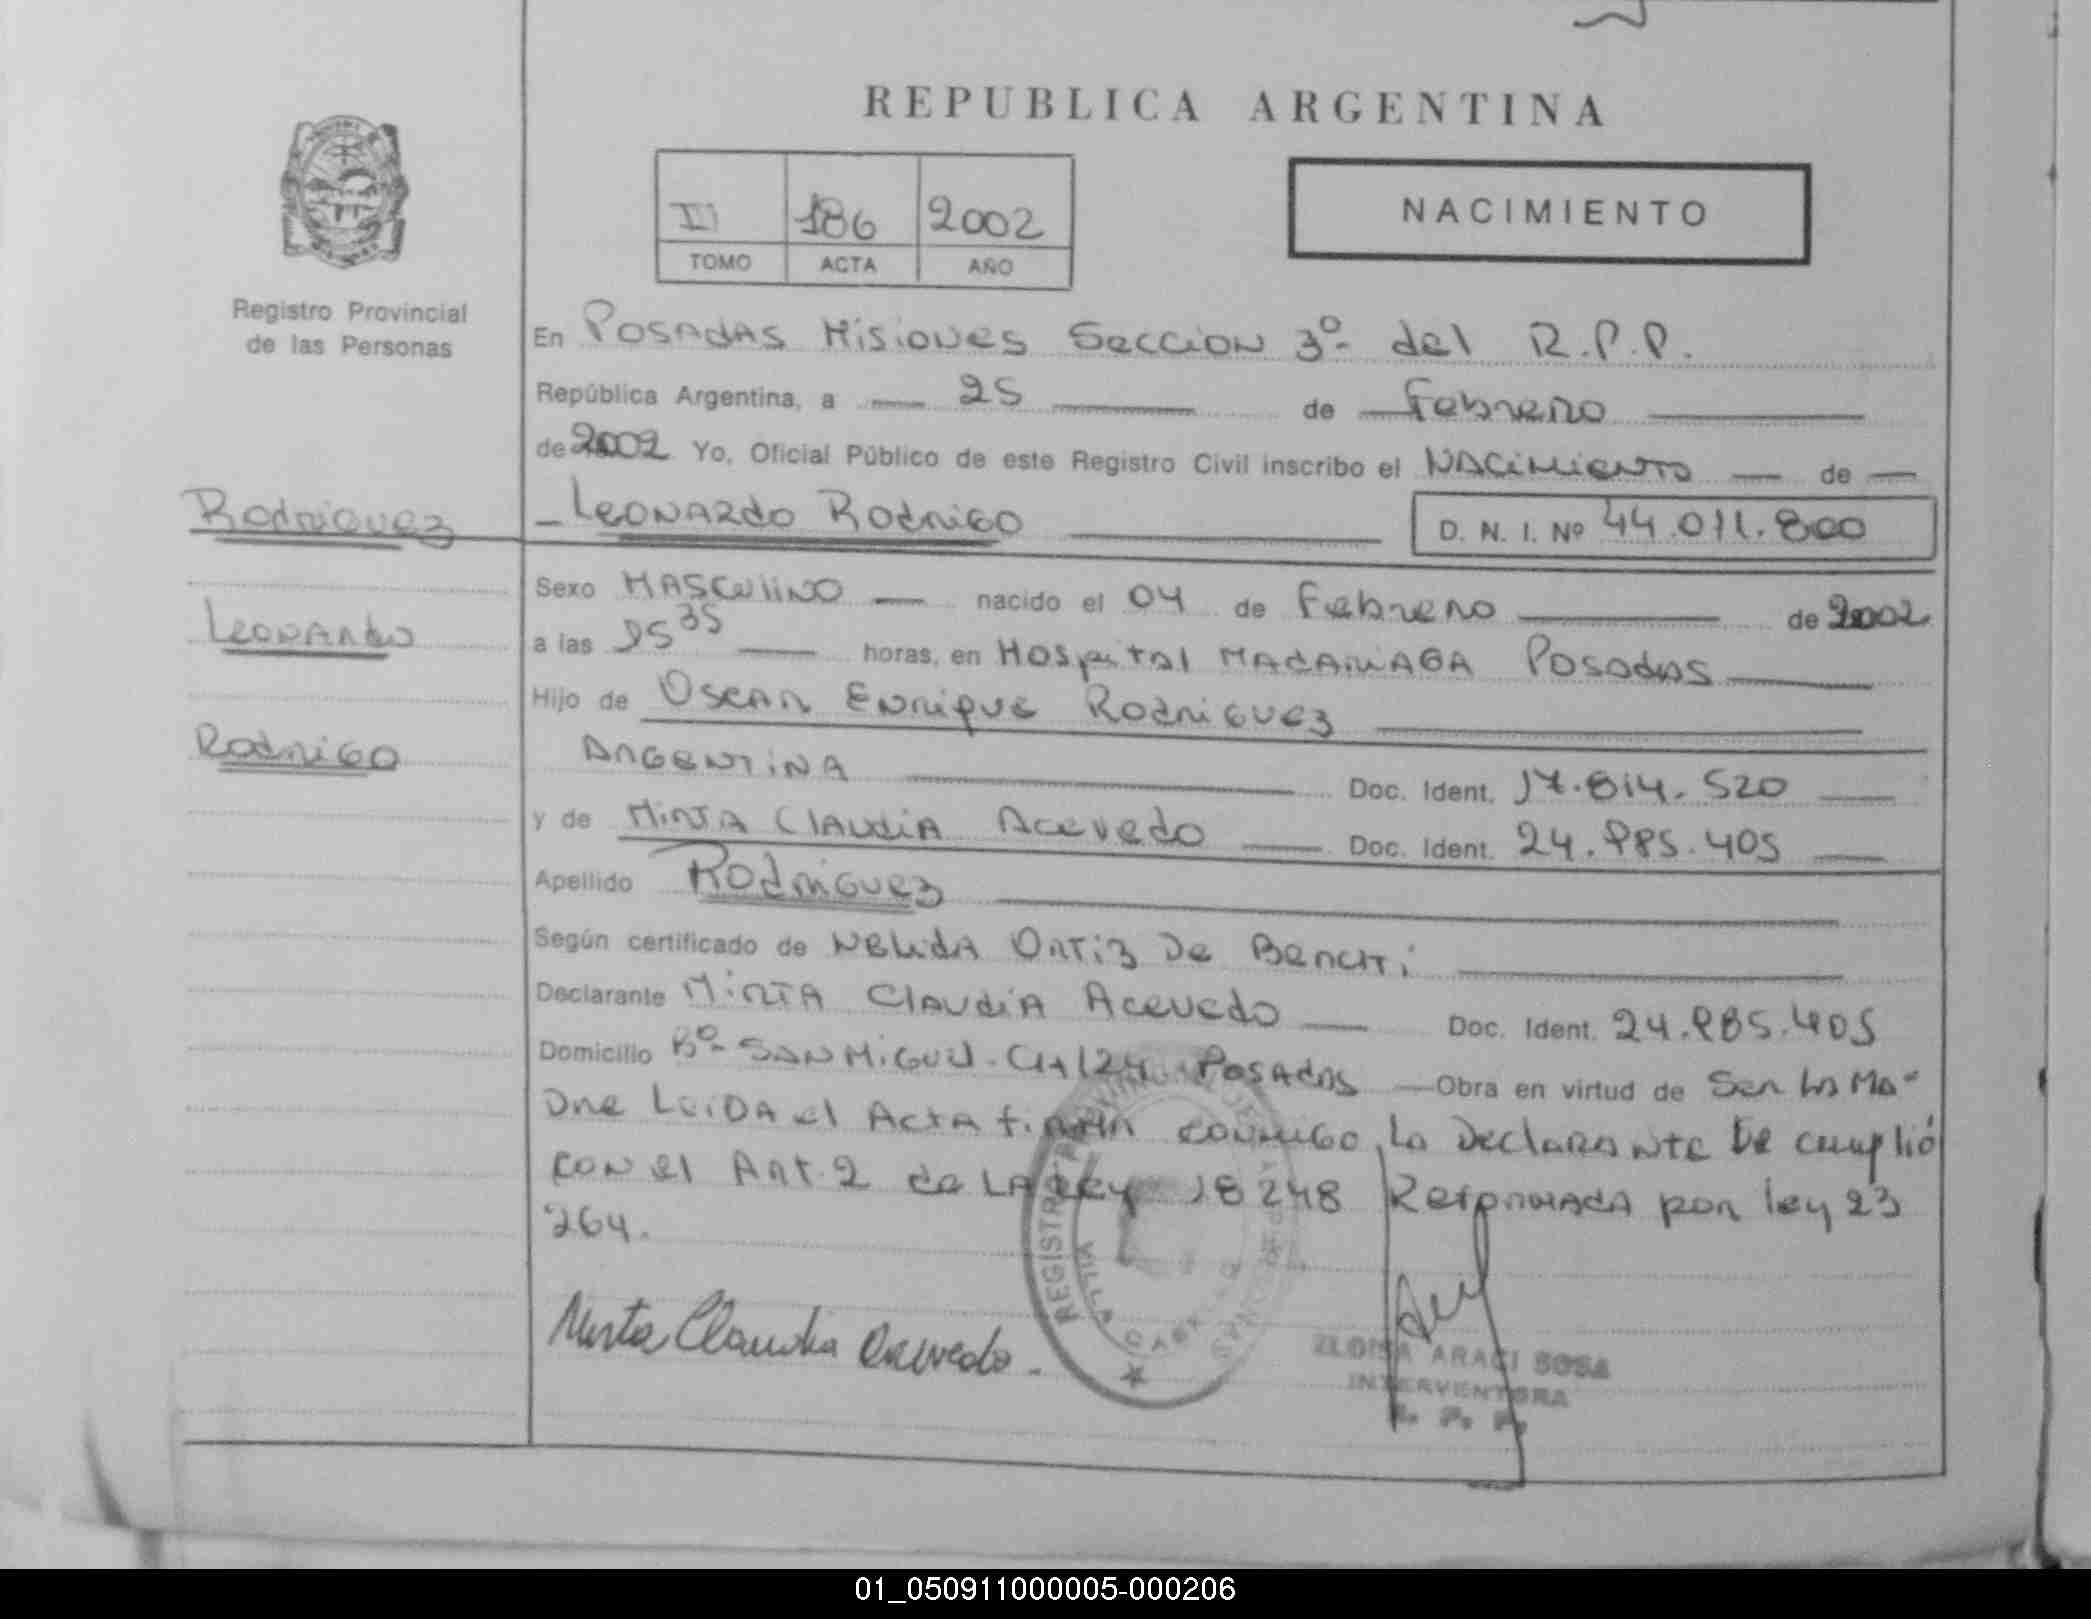 REPUBLICA ARGENTINA
III 186 2002
TOMO ACTA AÑO
NACIMIENTO
Registro Provincial
de las Personas
En Posadas Misiones Seccion 3º del R.P.P.
República Argentina, a 25 de Febrero
de 2002 Yo, Oficial Público de este Registro Civil inscribo el Nacimiento de
Leonardo Rodrigo
D. N. I. Nº 44.011.800
Rodriguez
Leonardo
Rodrigo
Sexo Masculino nacido el 04 de Febrero de 2002
a las 15 35 horas, en Hospital Madariaga Posadas
Hijo de Oscar Enrique Rodriguez
Argentina Doc. Ident. 17.814.520
y de Mirta Claudia Acevedo Doc. Ident. 24.985.405
Apellido Rodriguez
Según certificado de Nelida Ortiz De
Declarante Mirta Claudia Acevedo Doc. Ident. 24.985.405
Domicilio Bº San Miguel - Ch 124 - Posadas Obra en virtud de Ser la Ma-
dre Leida el Acta firma conmigo la Declarante Se cumplió
con el Art. 2 de La Ley 18248 Reformada por ley 23
264.
Mirta Claudia Acevedo.
REGISTRO PROVINCIAL DE LAS PERSONAS
VILLA CABELLO
ELOISA ARACI SOSA
INTERVENTORA
R. P. P.
01_050911000005-000206